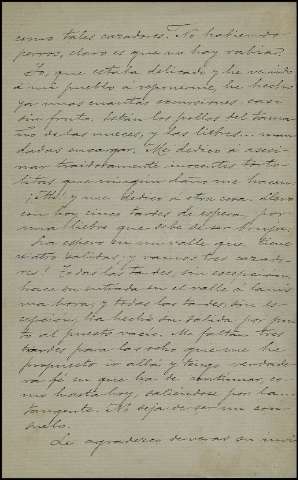 como tales cazadores. No habiendo
perros, claro es que no hay rabia?
Yo, que estaba delicado y he venido
á mi pueblo a reponerme, he hecho
ya unas cuantas excursiones, casi
sin fruto. Están los pollos del tama-
ño de las nueces, y las liebres... man
dadas encargar. Me dedico a asesi-
nar traidoramente inocentes torto-
litas que ningún daño me hacen.
¡Ah! y me dedico a otra cosa. Llevo
con hoy cinco tardes de espera, por
una liebre que debe de ser bruja.
La espero en un valle que tiene
cuatro salidas, y vamos tres cazado-
res! Todas las tardes, sin excepción,
hace su entrada en el valle á la mis
ma hora; y todas las tardes, sin ex-
cepción, ha hecho su salida por jun
to al puesto vacío. Me faltan tres
tardes para las ocho que me he
propuesto ir allá y tengo verdade
ra fé en que ha de continuar, co-
mo hasta hoy, saliéndose por la
tangente. No deja de ser un con-
suelo.
Le agradezco deveras su invi